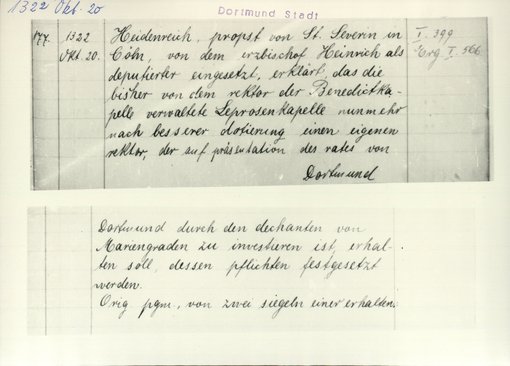 1322 Okt. 20
Dortmund Stadt
177. 1322 Okt. 20.
Heidenreich, propst von St. Severin in
Cöln, von dem erzbischof Heinrich als
deputierter eingesetzt, erklärt, das die
bisher von dem rektor der Benedictka-
pelle verwaltete Leprosenkapelle nunmehr
nach besserer dotierung einen eigenen
rektor, der auf präsentation des rates von
Dortmund
I. 399
Erg. I. 566
Dortmund durch den dechanten von
Mariengraden zu investieren ist, erhal-
ten soll, dessen pflichten festgesetzt
werden.
Orig pgm, von zwei siegeln einer erhalten.